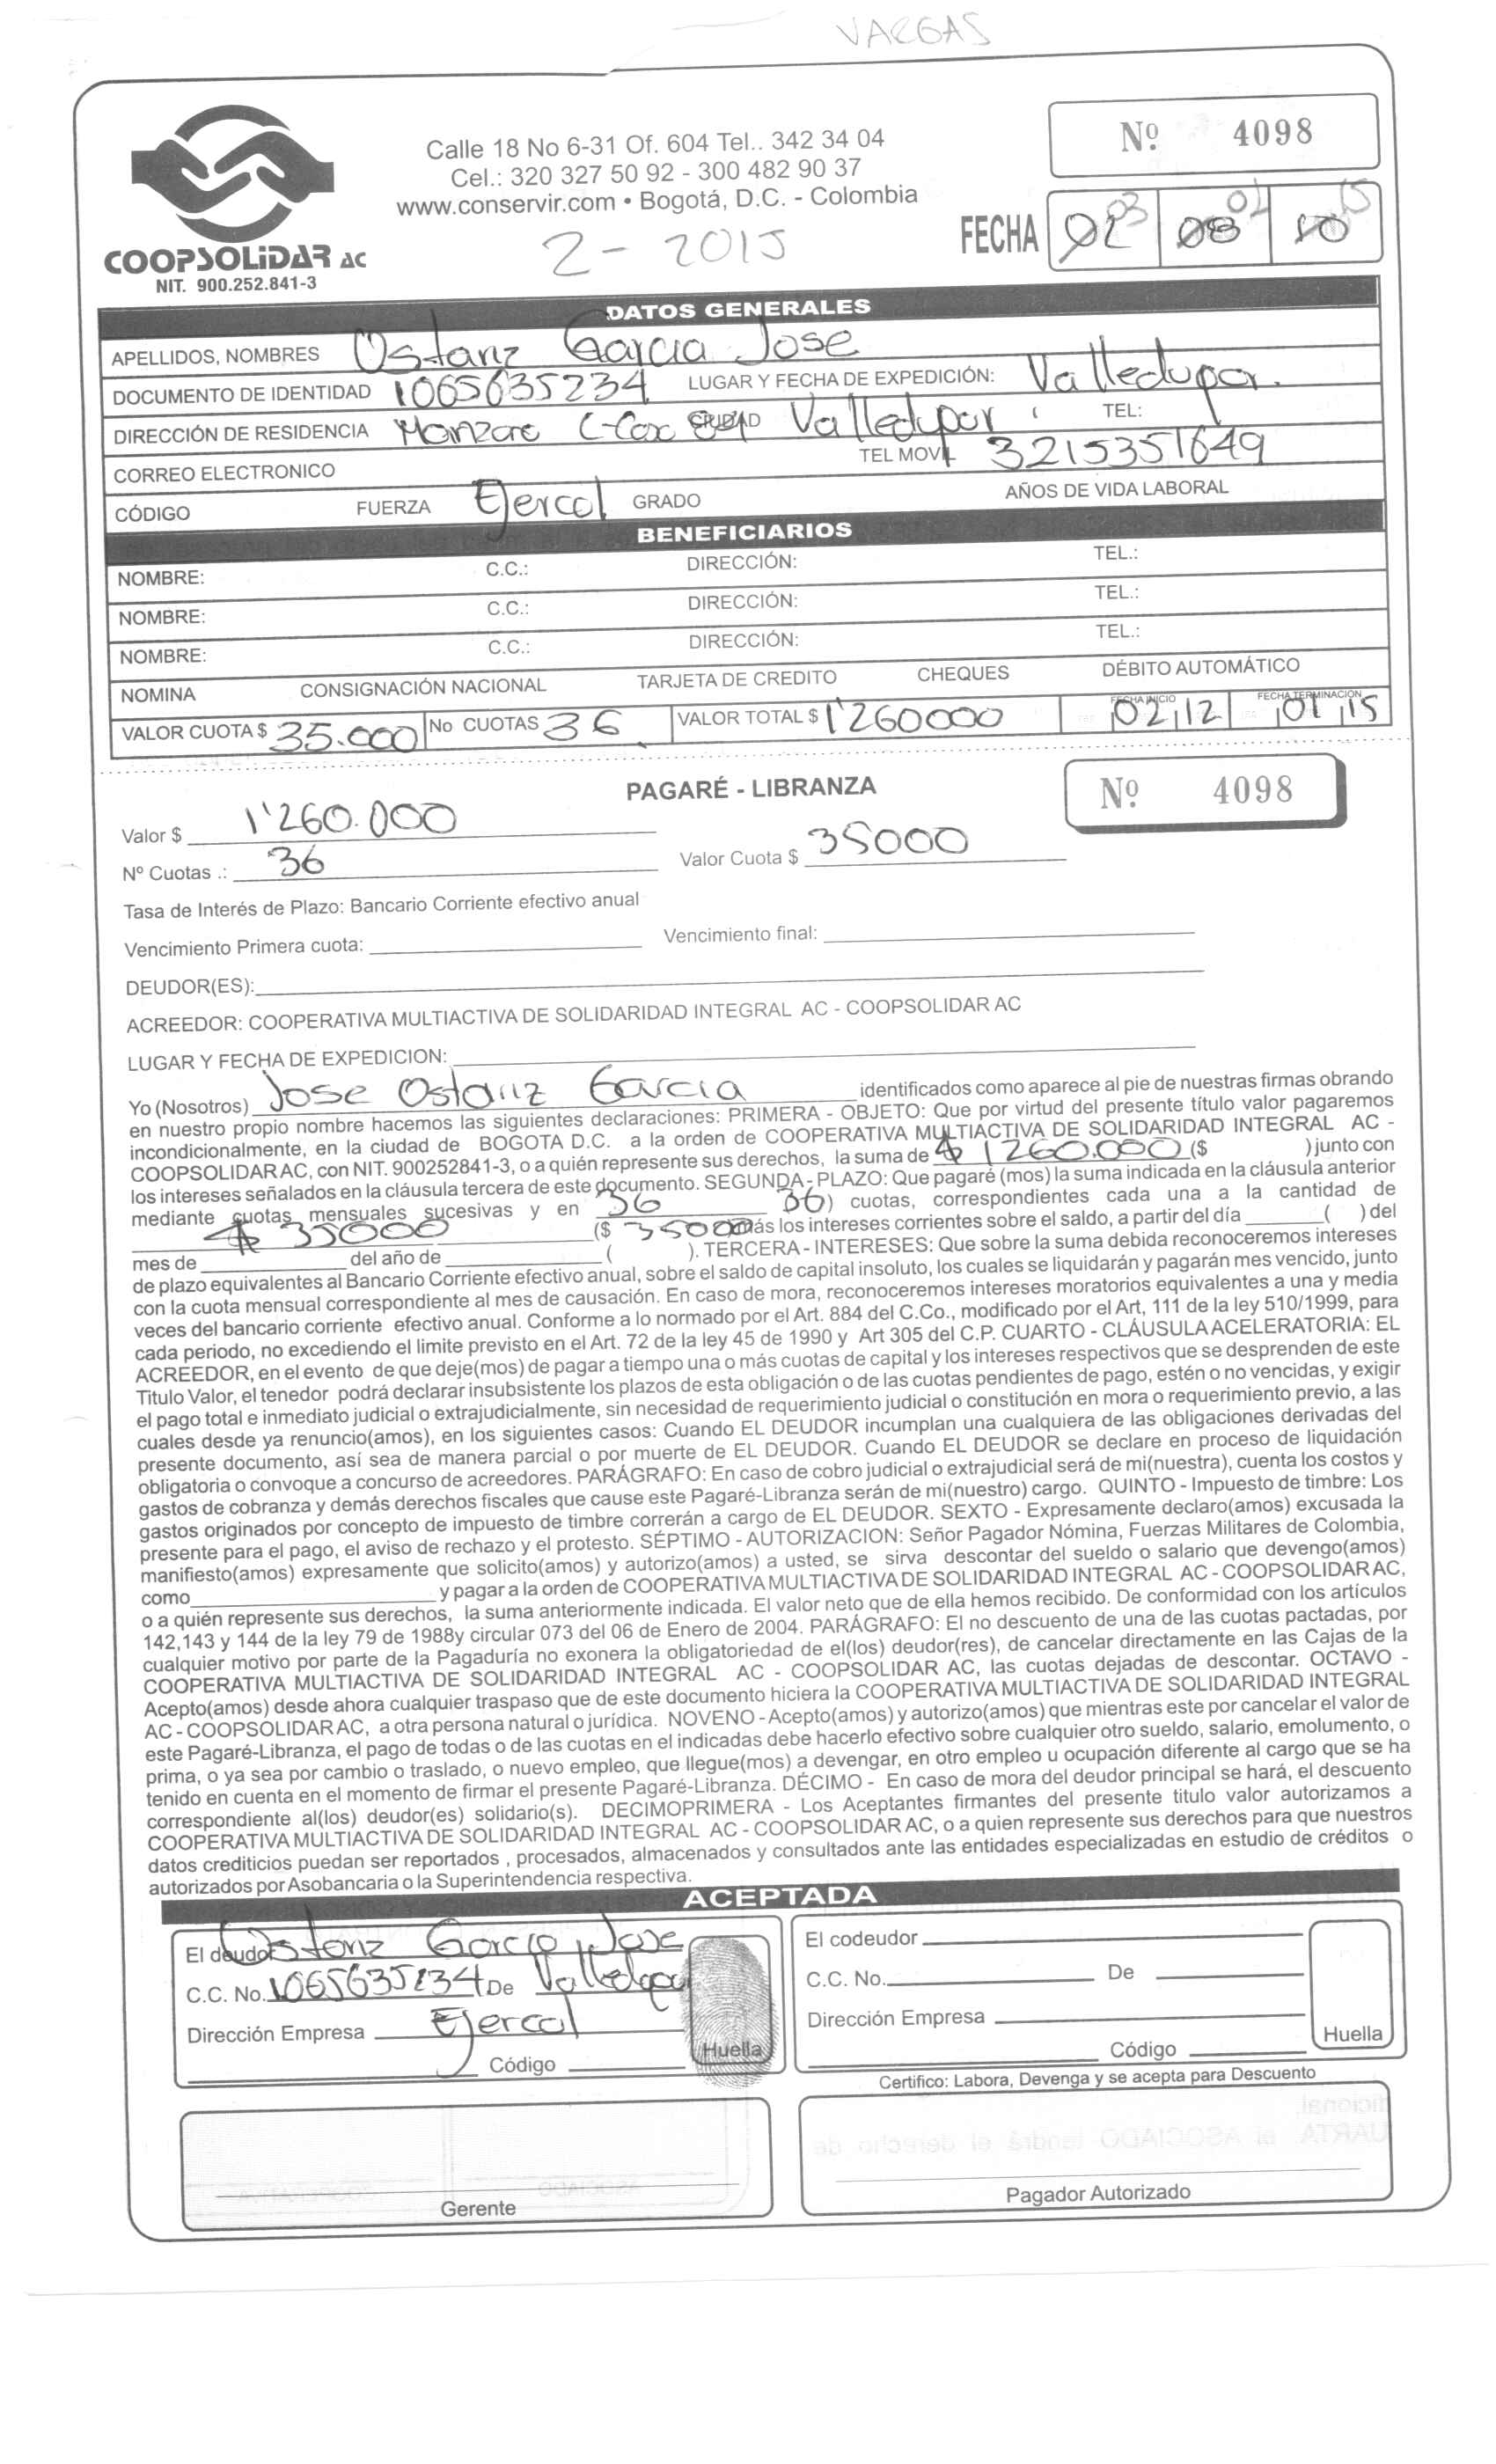 VARGAS
Calle 18 No 6-31 Of. 604 Tel.. 342 34 04
Cel.: 320 327 50 92 - 300 482 90 37
www.conservir.com • Bogotá, D.C. - Colombia
Nº 4098
COOPSOLiDAR AC
NIT. 900.252.841-3
2 - 2015
FECHA 03 02 15
DATOS GENERALES
APELLIDOS, NOMBRES Ostariz Garcia Jose
DOCUMENTO DE IDENTIDAD 1065635234 LUGAR Y FECHA DE EXPEDICIÓN: Valledupar.
DIRECCIÓN DE RESIDENCIA CIUDAD Valledupar TEL:
CORREO ELECTRONICO TEL MOVIL 3215351649
CÓDIGO FUERZA Ejercol GRADO AÑOS DE VIDA LABORAL
BENEFICIARIOS
NOMBRE: C.C.: DIRECCIÓN: TEL.:
NOMBRE: C.C.: DIRECCIÓN: TEL.:
NOMBRE: C.C.: DIRECCIÓN: TEL.:
NOMINA CONSIGNACIÓN NACIONAL TARJETA DE CREDITO CHEQUES DÉBITO AUTOMÁTICO
VALOR CUOTA $ 35.000 No CUOTAS 36 VALOR TOTAL $ 1'260000 FECHA INICIO 02 12 FECHA TERMINACION 01 15
PAGARÉ - LIBRANZA Nº 4098
Valor $ 1'260.000
Nº Cuotas .: 36 Valor Cuota $ 35000
Tasa de Interés de Plazo: Bancario Corriente efectivo anual
Vencimiento Primera cuota: Vencimiento final:
DEUDOR(ES):
ACREEDOR: COOPERATIVA MULTIACTIVA DE SOLIDARIDAD INTEGRAL AC - COOPSOLIDAR AC
LUGAR Y FECHA DE EXPEDICION:
Yo (Nosotros) Jose Ostariz Garcia identificados como aparece al pie de nuestras firmas obrando
en nuestro propio nombre hacemos las siguientes declaraciones: PRIMERA - OBJETO: Que por virtud del presente título valor pagaremos
incondicionalmente, en la ciudad de BOGOTA D.C. a la orden de COOPERATIVA MULTIACTIVA DE SOLIDARIDAD INTEGRAL AC -
COOPSOLIDAR AC, con NIT. 900252841-3, o a quién represente sus derechos, la suma de $ 1260.000 ($ ) junto con
los intereses señalados en la cláusula tercera de este documento. SEGUNDA - PLAZO: Que pagaré (mos) la suma indicada en la cláusula anterior
mediante cuotas mensuales sucesivas y en 36 36) cuotas, correspondientes cada una a la cantidad de
$ 35000 ($ 35000 más los intereses corrientes sobre el saldo, a partir del día ( ) del
mes de del año de ( ). TERCERA - INTERESES: Que sobre la suma debida reconoceremos intereses
de plazo equivalentes al Bancario Corriente efectivo anual, sobre el saldo de capital insoluto, los cuales se liquidarán y pagarán mes vencido, junto
con la cuota mensual correspondiente al mes de causación. En caso de mora, reconoceremos intereses moratorios equivalentes a una y media
veces del bancario corriente efectivo anual. Conforme a lo normado por el Art. 884 del C.Co., modificado por el Art, 111 de la ley 510/1999, para
cada periodo, no excediendo el limite previsto en el Art. 72 de la ley 45 de 1990 y Art 305 del C.P. CUARTO - CLÁUSULA ACELERATORIA: EL
ACREEDOR, en el evento de que deje(mos) de pagar a tiempo una o más cuotas de capital y los intereses respectivos que se desprenden de este
Titulo Valor, el tenedor podrá declarar insubsistente los plazos de esta obligación o de las cuotas pendientes de pago, estén o no vencidas, y exigir
el pago total e inmediato judicial o extrajudicialmente, sin necesidad de requerimiento judicial o constitución en mora o requerimiento previo, a las
cuales desde ya renuncio(amos), en los siguientes casos: Cuando EL DEUDOR incumplan una cualquiera de las obligaciones derivadas del
presente documento, así sea de manera parcial o por muerte de EL DEUDOR. Cuando EL DEUDOR se declare en proceso de liquidación
obligatoria o convoque a concurso de acreedores. PARÁGRAFO: En caso de cobro judicial o extrajudicial será de mi(nuestra), cuenta los costos y
gastos de cobranza y demás derechos fiscales que cause este Pagaré-Libranza serán de mi(nuestro) cargo. QUINTO - Impuesto de timbre: Los
gastos originados por concepto de impuesto de timbre correrán a cargo de EL DEUDOR. SEXTO - Expresamente declaro(amos) excusada la
presente para el pago, el aviso de rechazo y el protesto. SÉPTIMO - AUTORIZACION: Señor Pagador Nómina, Fuerzas Militares de Colombia,
manifiesto(amos) expresamente que solicito(amos) y autorizo(amos) a usted, se sirva descontar del sueldo o salario que devengo(amos)
como y pagar a la orden de COOPERATIVA MULTIACTIVA DE SOLIDARIDAD INTEGRAL AC - COOPSOLIDAR AC,
o a quién represente sus derechos, la suma anteriormente indicada. El valor neto que de ella hemos recibido. De conformidad con los artículos
142,143 y 144 de la ley 79 de 1988y circular 073 del 06 de Enero de 2004. PARÁGRAFO: El no descuento de una de las cuotas pactadas, por
cualquier motivo por parte de la Pagaduría no exonera la obligatoriedad de el(los) deudor(res), de cancelar directamente en las Cajas de la
COOPERATIVA MULTIACTIVA DE SOLIDARIDAD INTEGRAL AC - COOPSOLIDAR AC, las cuotas dejadas de descontar. OCTAVO -
Acepto(amos) desde ahora cualquier traspaso que de este documento hiciera la COOPERATIVA MULTIACTIVA DE SOLIDARIDAD INTEGRAL
AC - COOPSOLIDAR AC, a otra persona natural o jurídica. NOVENO - Acepto(amos) y autorizo(amos) que mientras este por cancelar el valor de
este Pagaré-Libranza, el pago de todas o de las cuotas en el indicadas debe hacerlo efectivo sobre cualquier otro sueldo, salario, emolumento, o
prima, o ya sea por cambio o traslado, o nuevo empleo, que llegue(mos) a devengar, en otro empleo u ocupación diferente al cargo que se ha
tenido en cuenta en el momento de firmar el presente Pagaré-Libranza. DÉCIMO - En caso de mora del deudor principal se hará, el descuento
correspondiente al(los) deudor(es) solidario(s). DECIMOPRIMERA - Los Aceptantes firmantes del presente titulo valor autorizamos a
COOPERATIVA MULTIACTIVA DE SOLIDARIDAD INTEGRAL AC - COOPSOLIDAR AC, o a quien represente sus derechos para que nuestros
datos crediticios puedan ser reportados , procesados, almacenados y consultados ante las entidades especializadas en estudio de créditos o
autorizados por Asobancaria o la Superintendencia respectiva.
ACEPTADA
El deudor Ostariz Garcia Jose El codeudor
C.C. No. 1065635234 De Valledupar C.C. No. De
Dirección Empresa Ejercol Dirección Empresa
Código Huella Código Huella
Certifico: Labora, Devenga y se acepta para Descuento
Gerente Pagador Autorizado